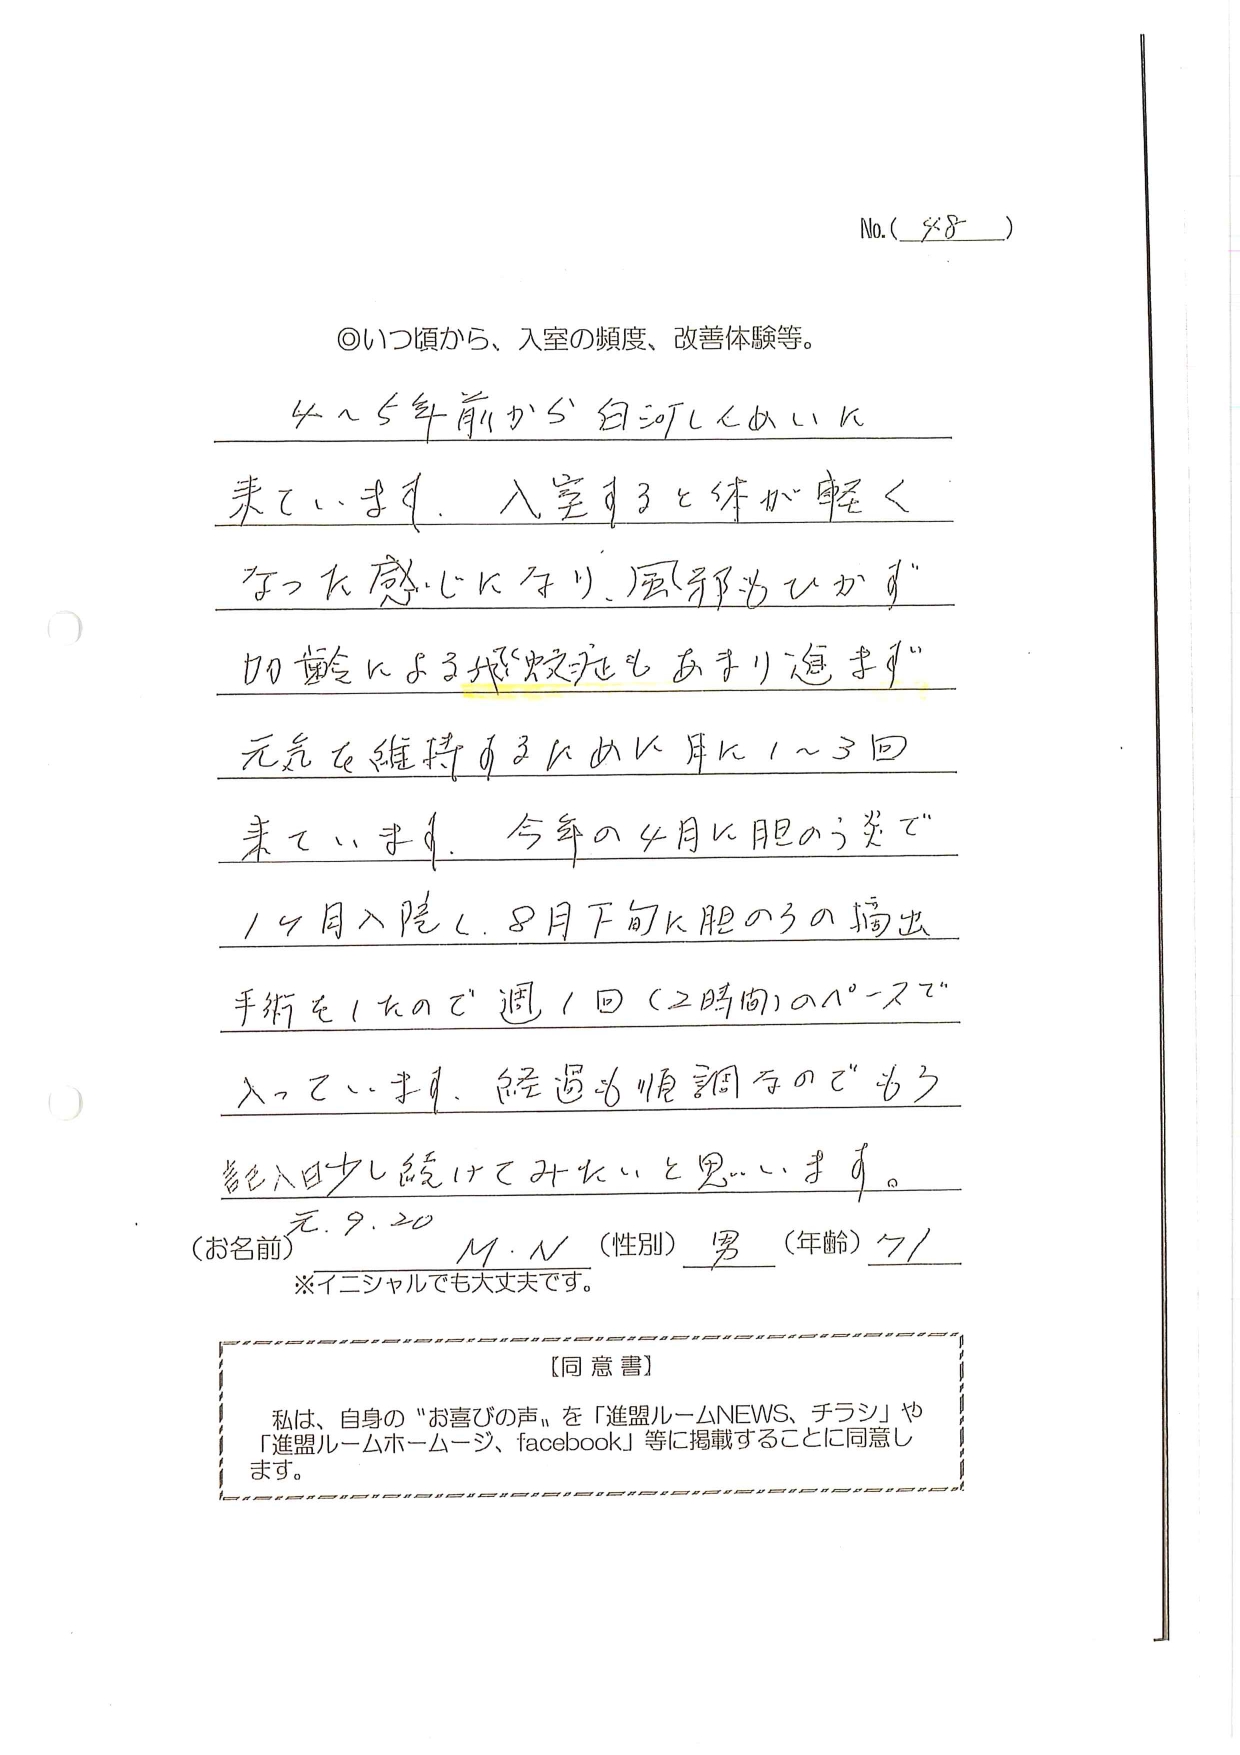 No.(48)
◎いつ頃から、入室の頻度、改善体験等。
4～5年前から白河しんめいに
来ています. 入室すると体が軽く
なった感じになり、風邪もひかず
加齢による飛蚊症もあまり進まず
元気を維持するために月に1～3回
来ています. 今年の4月に胆のう炎で
1ケ月入院し. 8月下旬に胆のうの摘出
手術をしたので週1回(2時間)のペースで
入っています. 経過も順調なのでもう
記入日少し続けてみたいと思います。
元.9.20
(お名前) M.N (性別) 男 (年齢) 71
※イニシャルでも大丈夫です。
【同意書】
私は、自身の〝お喜びの声〟を「進盟ルームNEWS、チラシ」や
「進盟ルームホームージ、facebook」等に掲載することに同意し
ます。